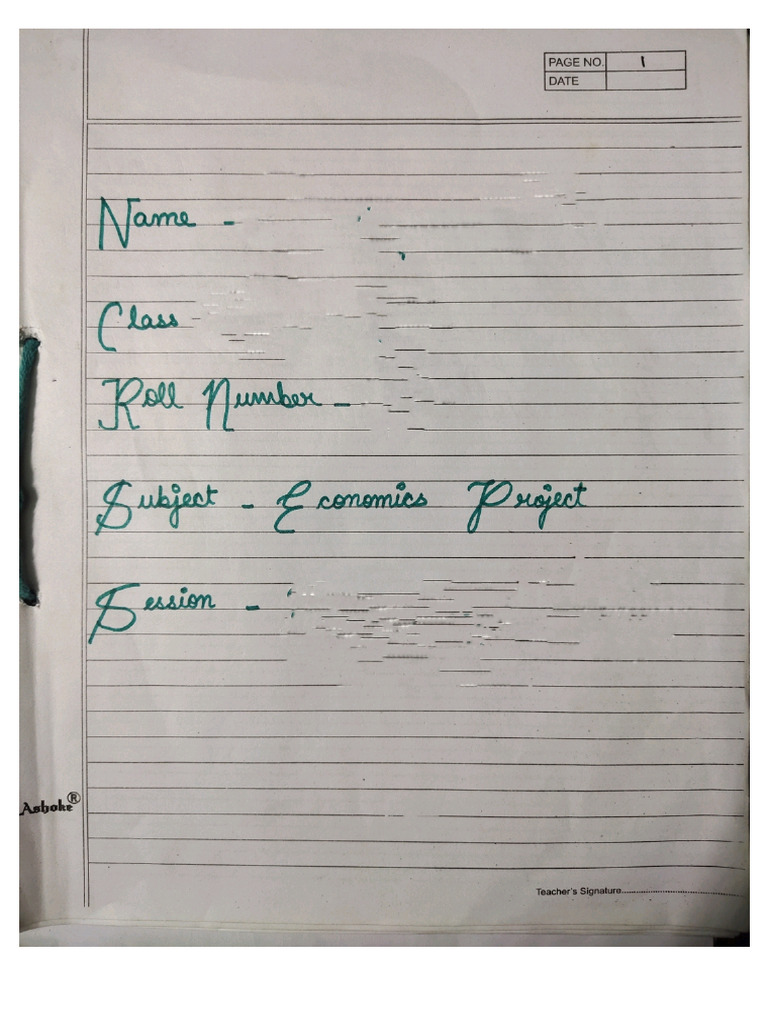 PAGE NO. 1
DATE
Name -
Class
Roll Number -
Subject - Economics Project
Session -
Ashoke®
Teacher's Signature........................